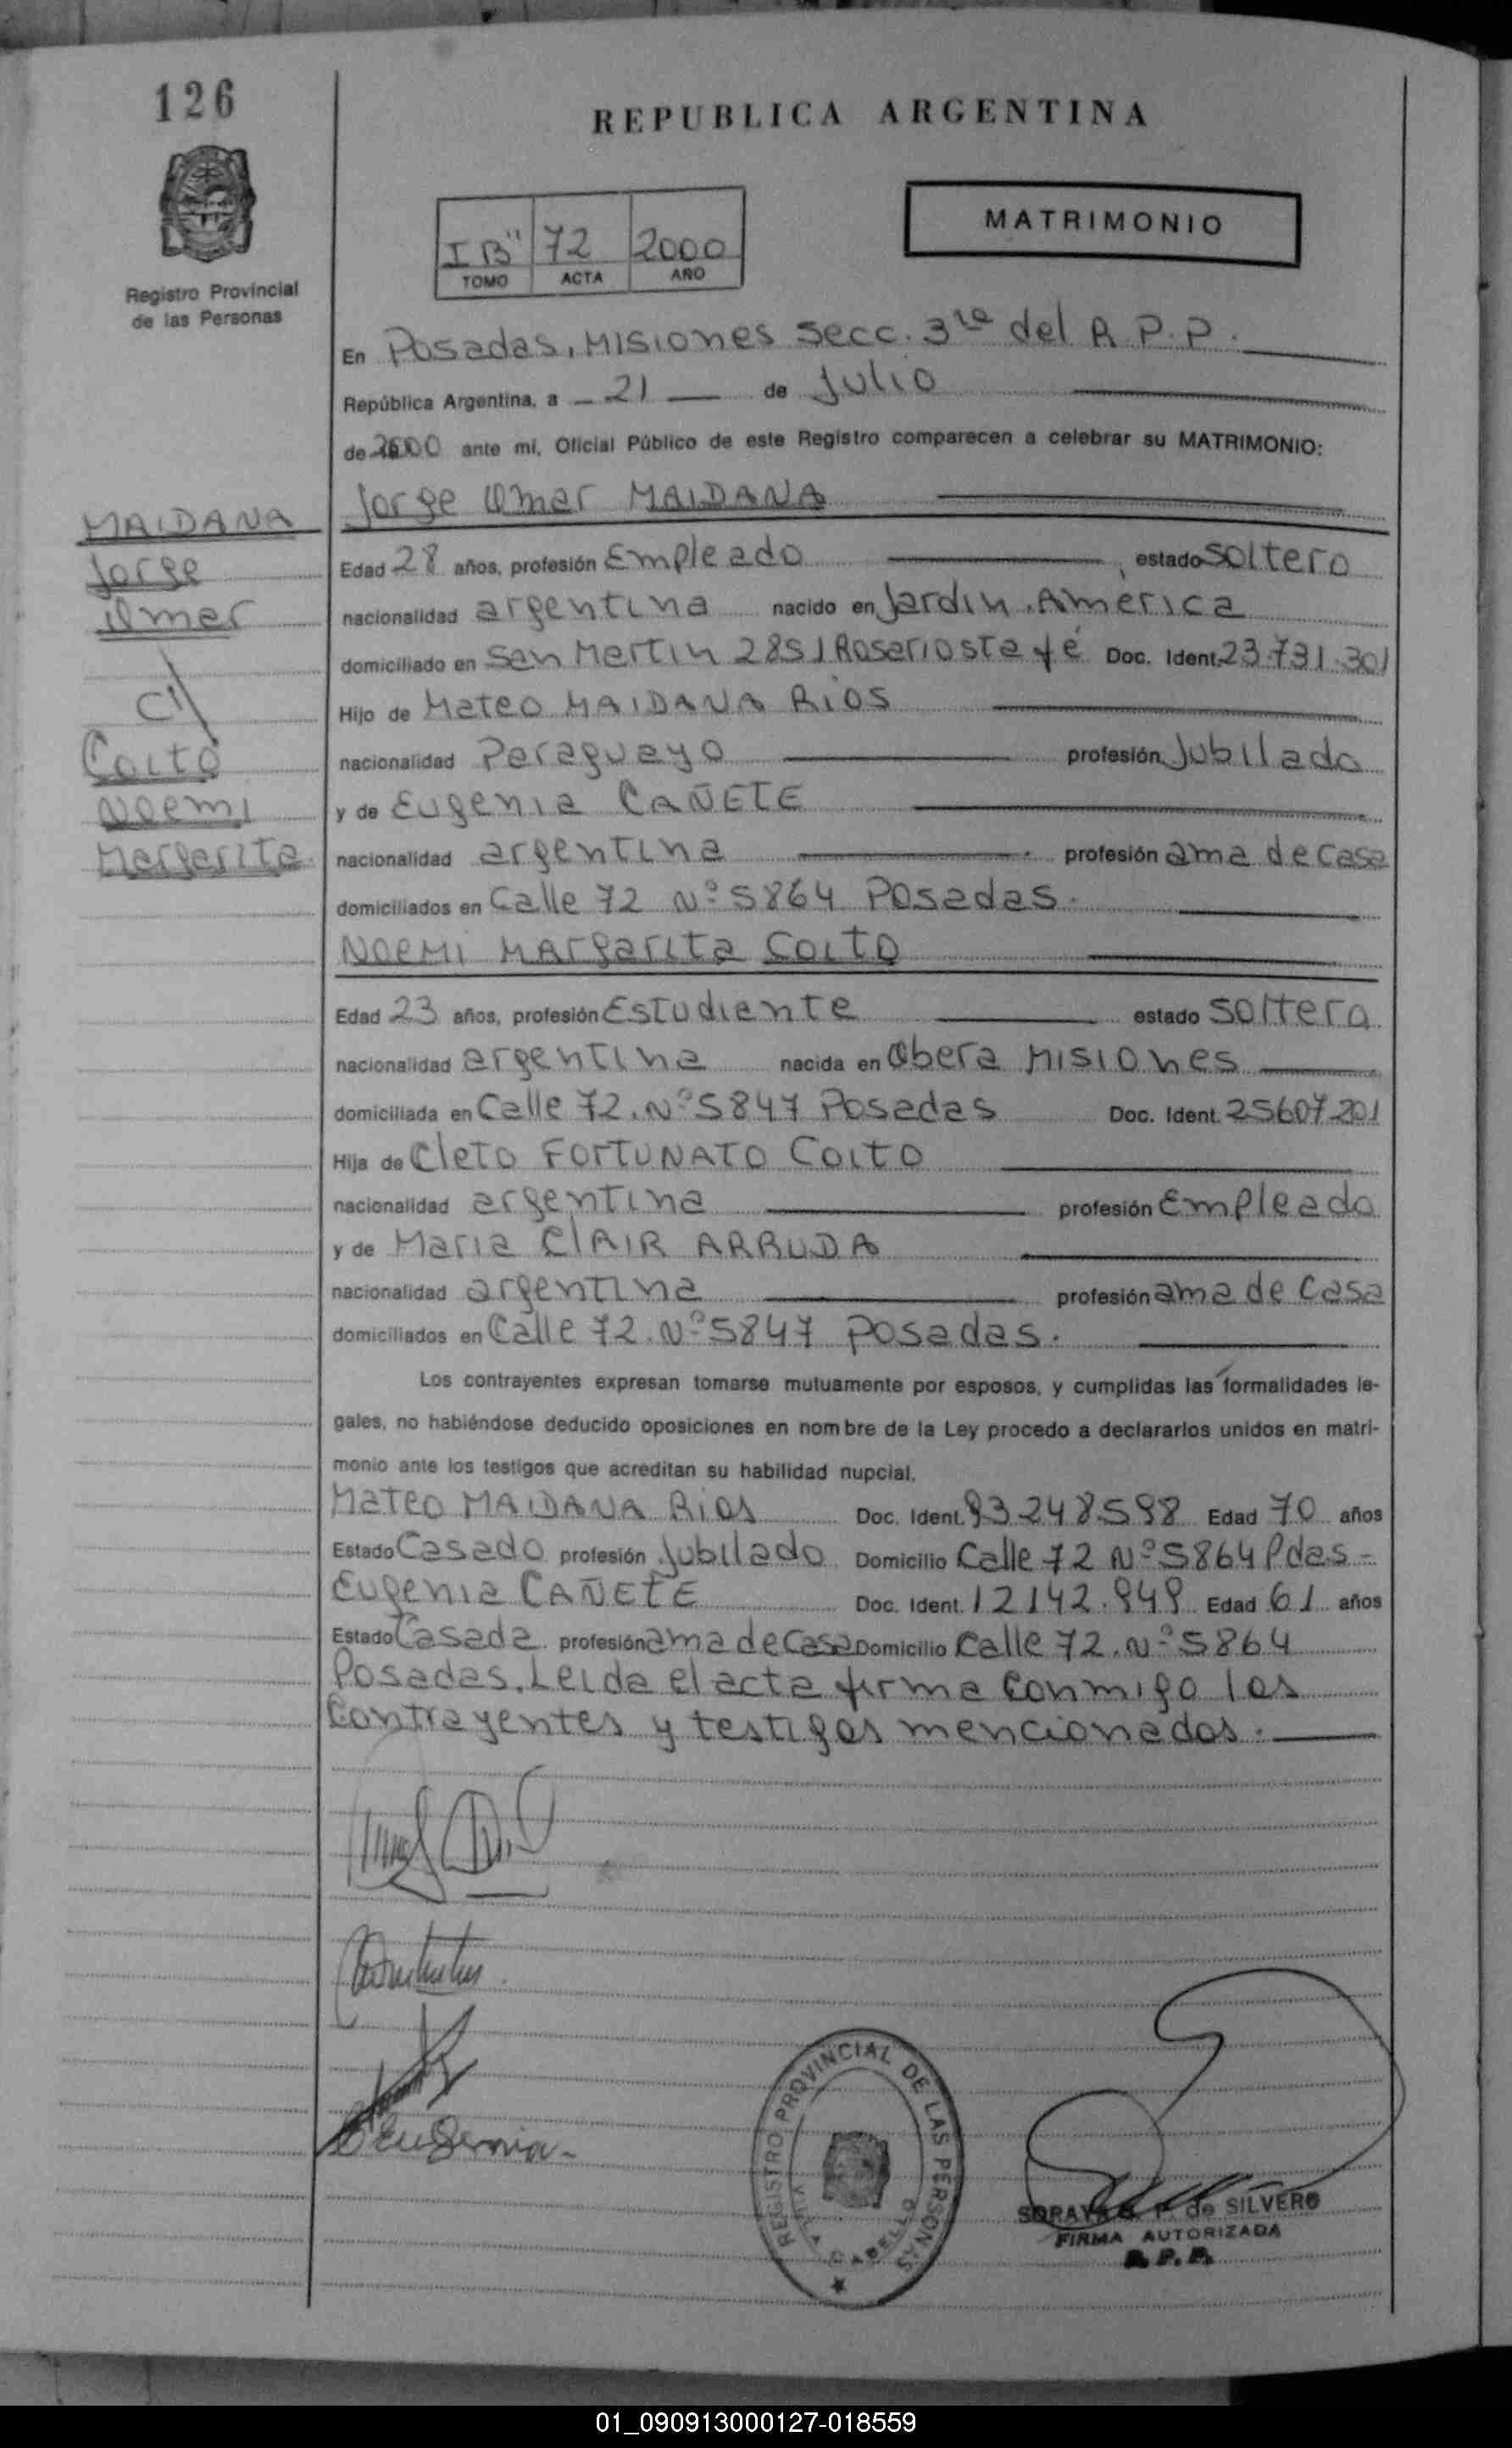 126
REPUBLICA ARGENTINA
Registro Provincial
de las Personas
I B" 72 2000
TOMO ACTA AÑO
MATRIMONIO
En Posadas, Misiones Secc. 3ra del R.P.P.
República Argentina, a 21 de Julio
de 2000 ante mi, Oficial Público de este Registro comparecen a celebrar su MATRIMONIO:
Jorge Omar MAIDANA
MAIDANA
Jorge
Omar
C/
Coito
Noemi
Margarita
Edad 28 años, profesión Empleado estado Soltero
nacionalidad argentina nacido en Jardin America
domiciliado en San Martin 2851 Rosario Sta fé Doc. Ident. 23.731.301
Hijo de Mateo MAIDANA RiOS
nacionalidad Paraguayo profesión Jubilado
y de Eugenia CAÑETE
nacionalidad argentina profesión ama de casa
domiciliados en Calle 72 Nº 5864 Posadas.
NOEMI MARgarita COITO
Edad 23 años, profesión Estudiante estado Soltera
nacionalidad argentina nacida en Obera Misiones
domiciliada en Calle 72. Nº 5847 Posadas Doc. Ident. 25607.201
Hija de Cleto FORTUNATO COITO
nacionalidad argentina profesión Empleado
y de Maria ClAIR ARRUDA
nacionalidad argentina profesión ama de casa
domiciliados en Calle 72. Nº 5847 Posadas.
Los contrayentes expresan tomarse mutuamente por esposos, y cumplidas las formalidades le-
gales, no habiéndose deducido oposiciones en nombre de la Ley procedo a declararlos unidos en matri-
monio ante los testigos que acreditan su habilidad nupcial.
Mateo MAIDANA Rios Doc. Ident. 93.248.598 Edad 70 años
Estado Casado profesión Jubilado Domicilio Calle 72 Nº 5864 Pdas-
Eugenia CAÑETE Doc. Ident. 12142.949 Edad 61 años
Estado Casada profesión ama de Casa Domicilio Calle 72. Nº 5864
Posadas. Leida el acta firma conmigo los
Contrayentes y testigos mencionados.
Eugenia-
REGISTRO PROVINCIAL DE LAS PERSONAS
de SILVERO
FIRMA AUTORIZADA
R.P.P.
01_090913000127-018559